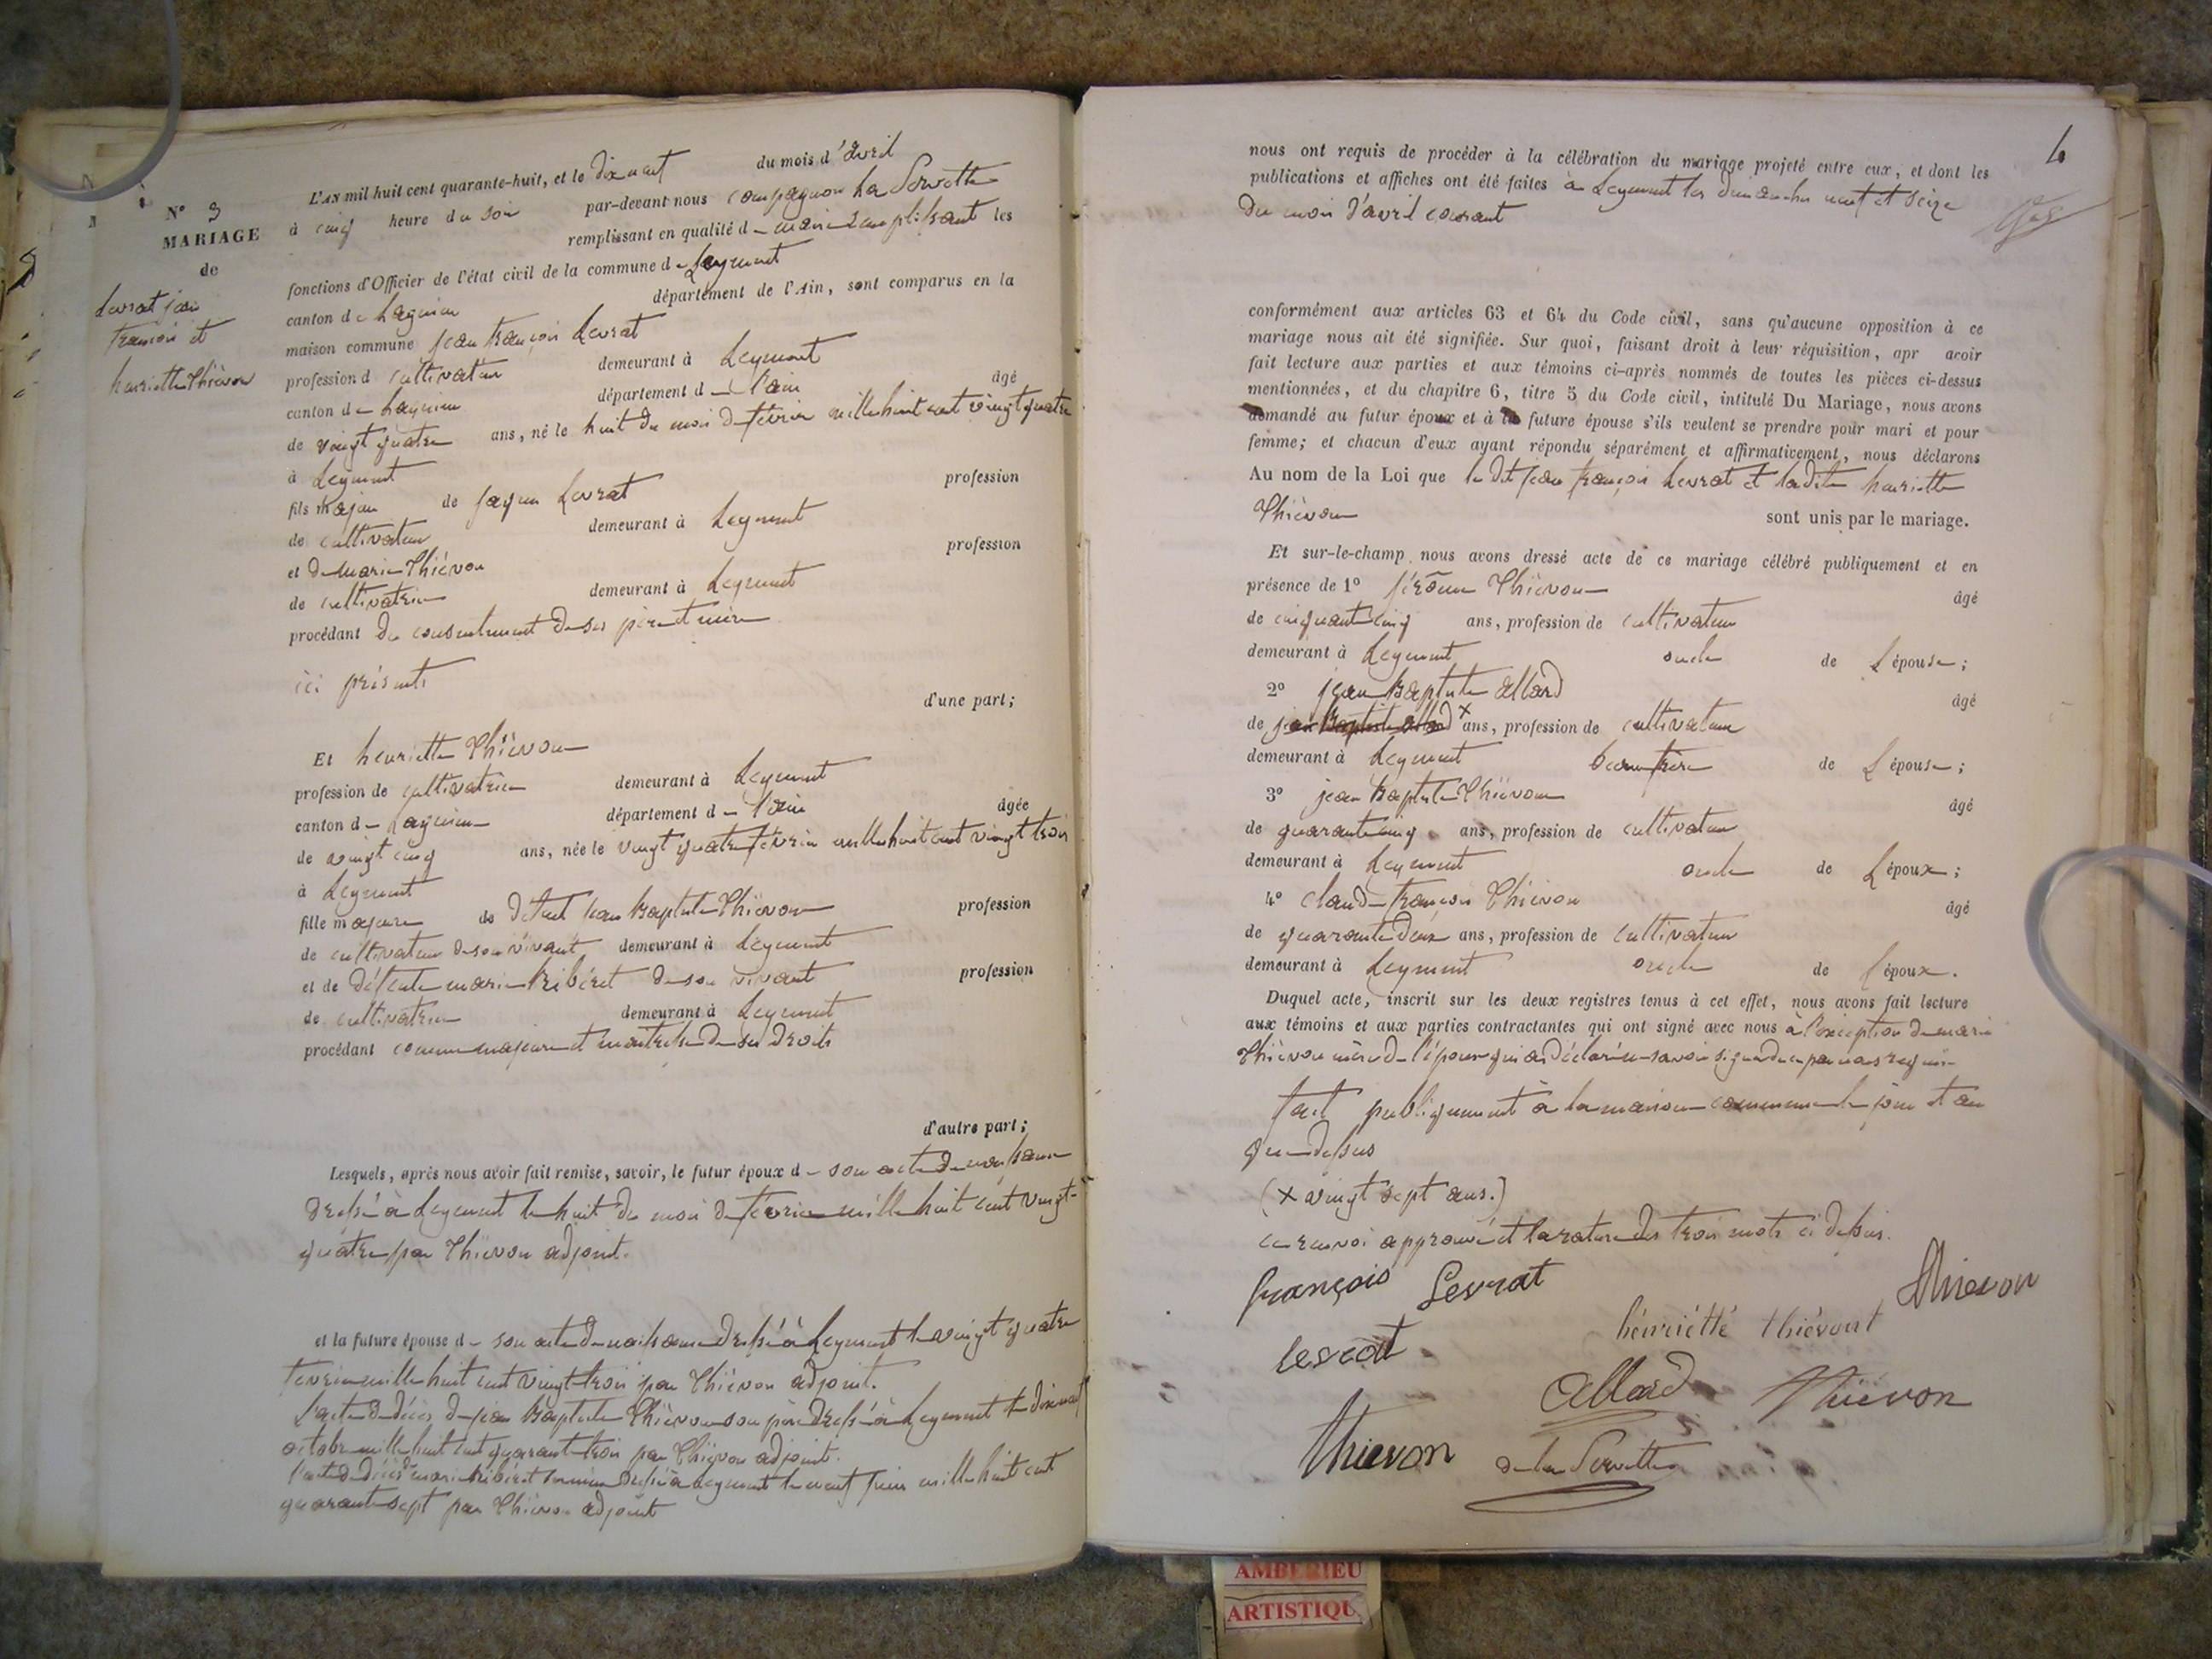 N° 3
MARIAGE
de
Levrat jean
françois et
henriette Thiévon
L'AN mil huit cent quarante-huit, et le dix neuf du mois d'avril
à cinq heure du soir par-devant nous compagnon La Servette
remplissant en qualité de maire remplissant les
fonctions d'Officier de l'état civil de la commune de Leyment
canton de Lagnieu département de l'Ain, sont comparus en la
maison commune jean françois Levrat
profession d cultivateur demeurant à Leyment
canton de Lagnieu département de l'ain âgé
de vingt quatre ans, né le huit du mois de février mille huit cent vingt quatre
à Leyment
fils majeur de jaque Levrat profession
de cultivateur demeurant à Leyment
et de marie Thiévon profession
de cultivatrice demeurant à Leyment
procédant du consentement de ses père et mère
ici présents
d'une part;
Et henriette Thiévon
profession de cultivatrice demeurant à Leyment
canton de Lagnieu département de l'ain âgée
de vingt cinq ans, née le vingt quatre février mille huit cent vingt trois
à Leyment
fille majeure de défunt jean Baptiste Thiévon profession
de cultivateur de son vivant demeurant à Leyment
et de défunte marie Ribéret de son vivant profession
de cultivatrice demeurant à Leyment
procédant comme majeure et maitresse de ses droits
d'autre part;
Lesquels, après nous avoir fait remise, savoir, le futur époux de son acte de naissance
dressé à Leyment le huit du mois de fevrier mille huit cent vingt-
quatre par Thiévon adjoint.
et la future épouse de son acte de naissance dressé à Leyment le vingt quatre
fevrier mille huit cent vingt trois par Thiévon adjoint.
L'acte de décès de jean Baptiste Thiévon son père dressé à Leyment le dix neuf
octobre mille huit cent quarante trois par Thiévon adjoint.
l'acte de décès de marie Ribéret sa mère dressé à Leyment le neuf juin mille huit cent
quarante sept par Thiévon adjoint
4
nous ont requis de procéder à la célébration du mariage projeté entre eux, et dont les
publications et affiches ont été faites à Leyment les dimanches neuf et seize
du mois d'avril courant
conformément aux articles 63 et 64 du Code civil, sans qu'aucune opposition à ce
mariage nous ait été signifiée. Sur quoi, faisant droit à leur réquisition, apr avoir
fait lecture aux parties et aux témoins ci-après nommés de toutes les pièces ci-dessus
mentionnées, et du chapitre 6, titre 5 du Code civil, intitulé Du Mariage, nous avons
demandé au futur époux et à la future épouse s'ils veulent se prendre pour mari et pour
femme; et chacun d'eux ayant répondu séparément et affirmativement, nous déclarons
Au nom de la Loi que le dit jean françois Levrat et ladite henriette
Thiévon sont unis par le mariage.
Et sur-le-champ nous avons dressé acte de ce mariage célébré publiquement et en
présence de 1° jérôme Thiévon âgé
de cinquante cinq ans, profession de cultivateur
demeurant à Leyment oncle de L'épouse;
2° jean Baptiste allard âgé
de jean Baptiste allard × ans, profession de cultivateur
demeurant à Leyment beau frère de L'épouse;
3° jean Baptiste Thiévon âgé
de quarante cinq ans, profession de cultivateur
demeurant à Leyment oncle de L'époux;
4° claude françois Thiévon âgé
de quarante deux ans, profession de cultivateur
demeurant à Leyment oncle de l'époux.
Duquel acte, inscrit sur les deux registres tenus à cet effet, nous avons fait lecture
aux témoins et aux parties contractantes qui ont signé avec nous à l'exception de marie
Thiévon mère de l'époux qui a déclaré ne savoir signer de ce par nous requise
fait publiquement à la maison commune le jour et an
que dessus
(× vingt sept ans.)
ce renvoi approuvé et la rature des trois mots ci dessus.
françois Levrat
Thievon
henriétté thiévont
Levrat
Allard
Thiévon
Thievon
de la Servette
AMBERIEU
ARTISTIQU